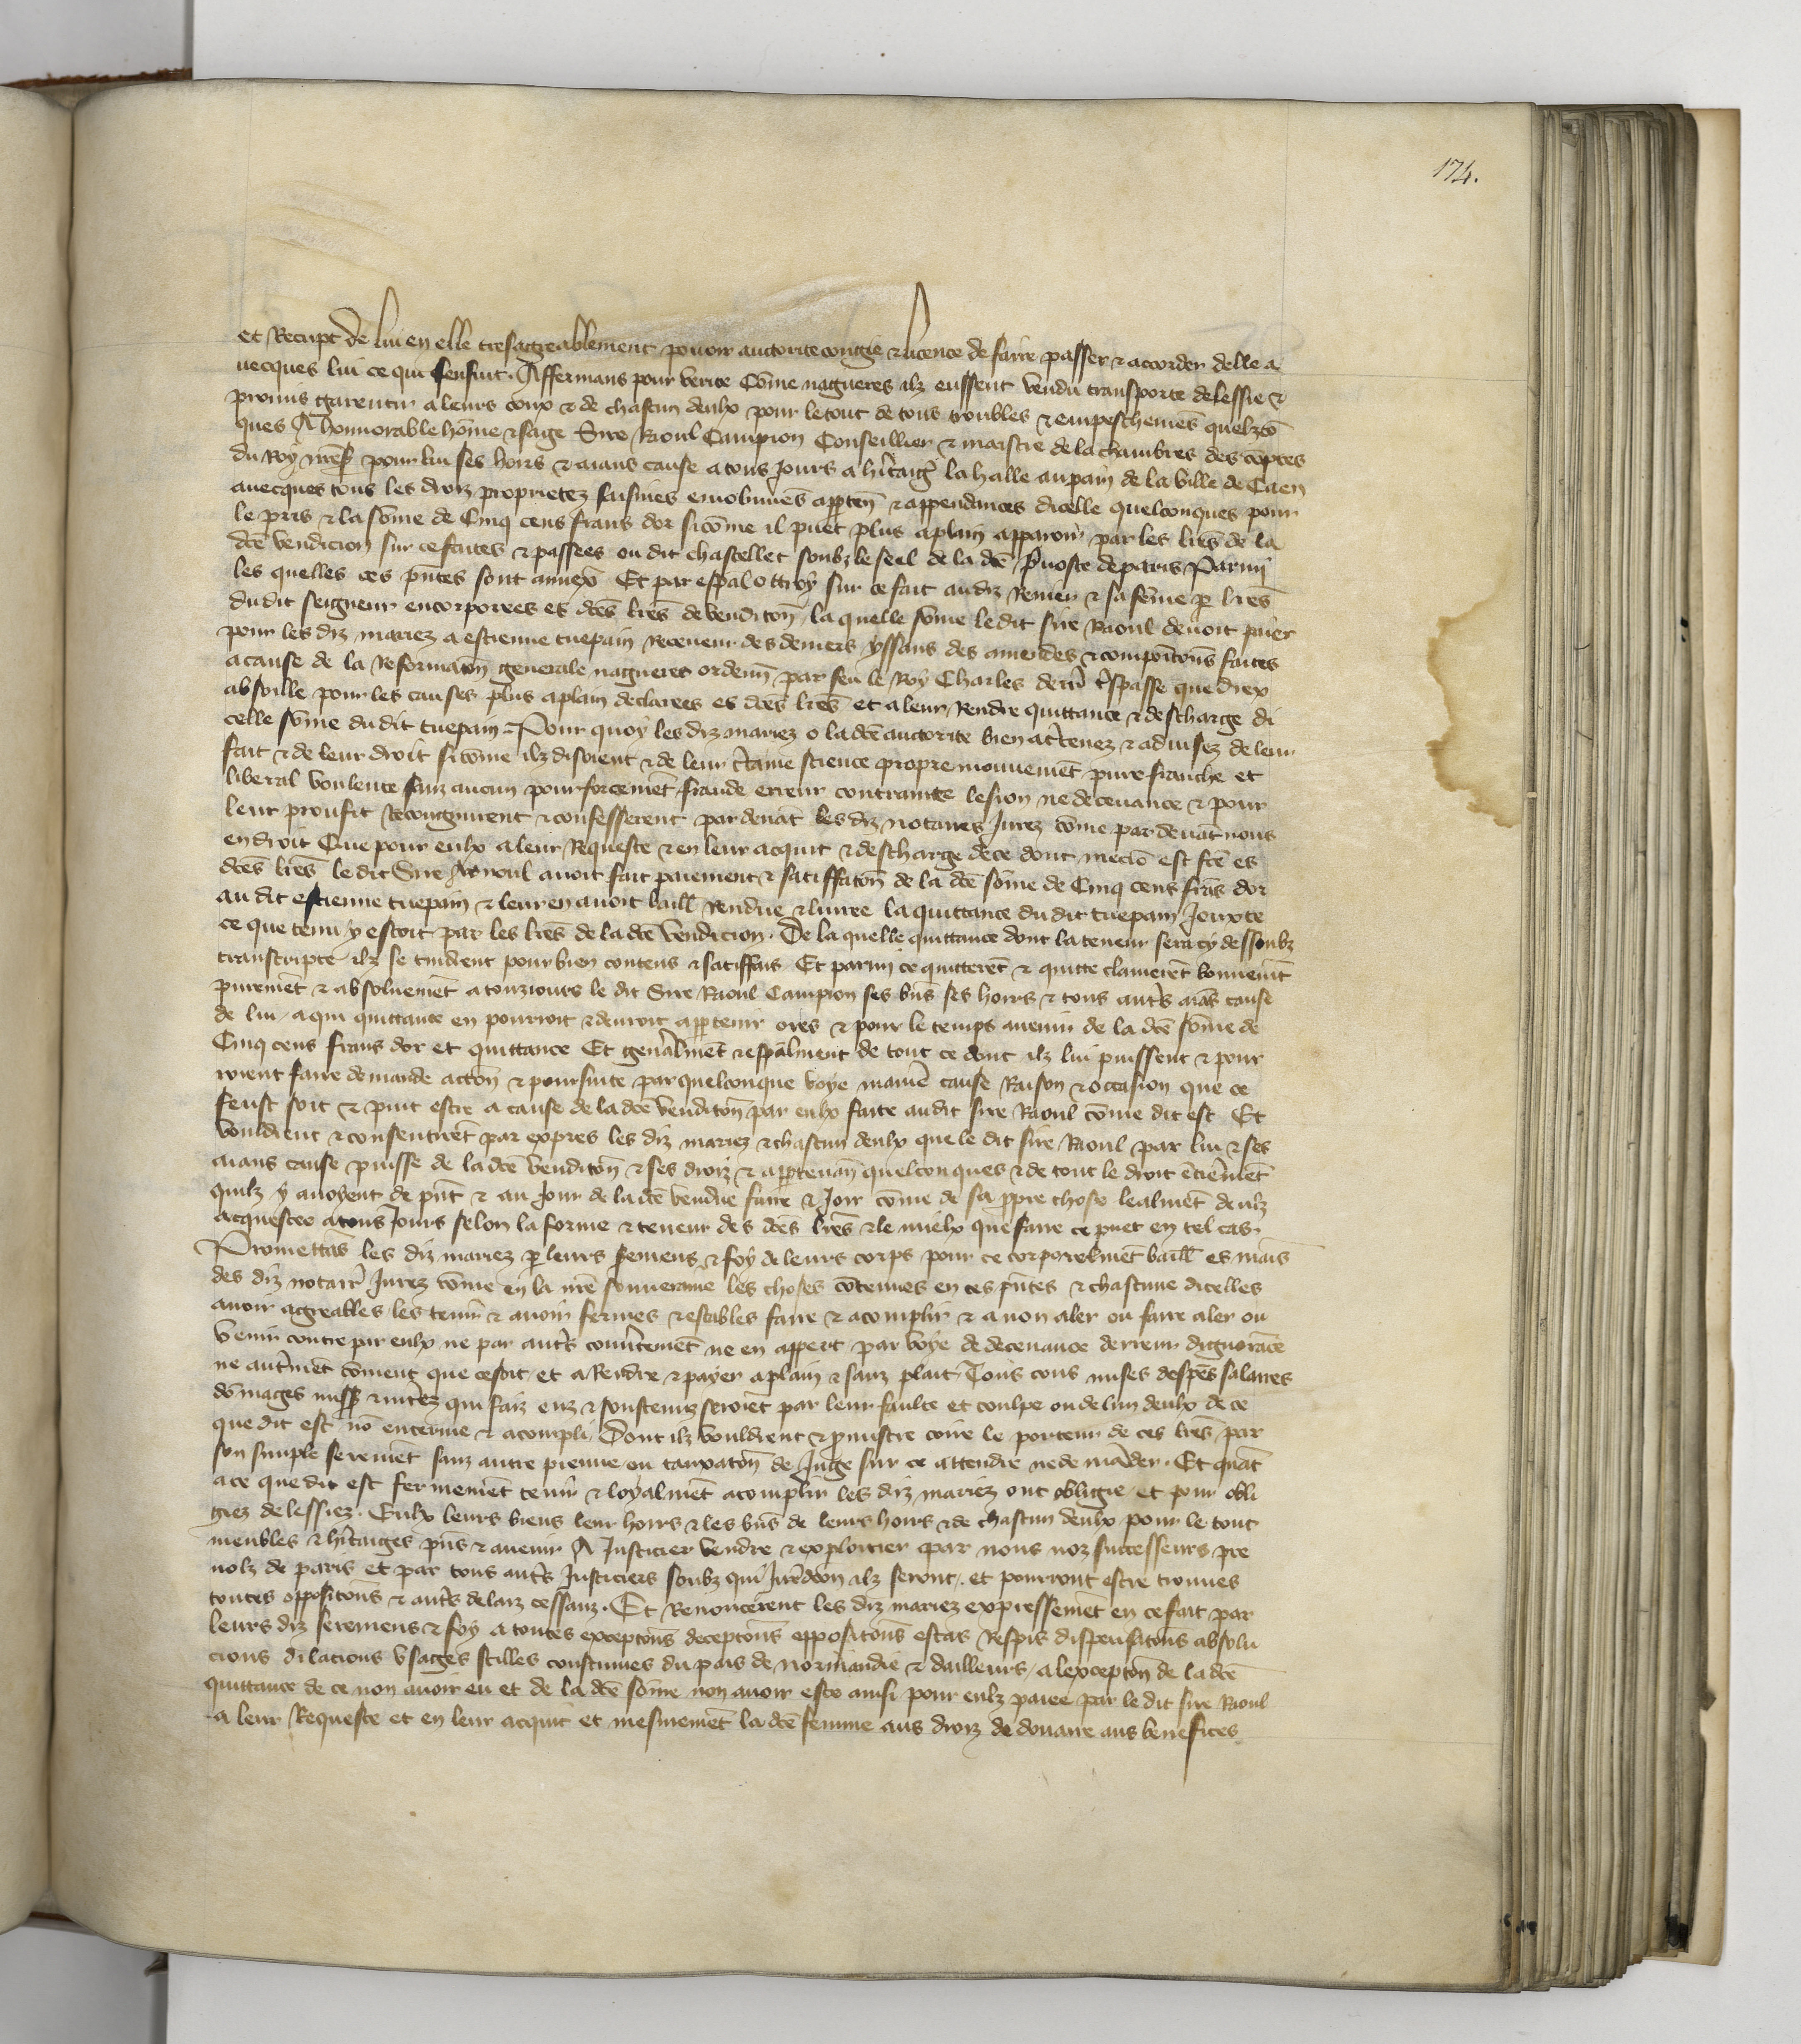 174.
et Recupt de lui en elle tresagreablement pouoir auctorite congie & licence de faire passer & accorder delle a
uecques lui ce qui sensuit. Affermans pour verite Cōme nagueres ilz eussent vendu transporte delessie &
promis garentir a leurs coux & de chascun deulx pour le tout de tous troubles & empeschemēs quelzcō
ques A honnorable hōme & sage Sire Raoul Campion Conseillier & maistre de la chambres des cōptes
du Roy nrēs pour lui ses hoirs & aians cause a tous Jours a h'itaig' la halle au pain de la ville de Caen
auecques tous les droiz proprietez saisines emolumēs apparten̄ & appendances dicelle quelconques pour
le pris & la sōme de Cinq cens frans dor sicōme il puet plus aplain apparoir par les lrēs de la
dcē vendicion sur ce fcātes & passees ou dit chastellet soubz le seel de la dcē p'uoste de paris Parmi
les quelles ces pn̄tes sont annex̄ Et par esp̄al ottroy sur ce fait audiz Renier & sa fēme p lrēs
dudit seigneur encorporees es dcēs lrēs de venditōn, la quelle sōme le dit sire Raoul deuoit paier
pour les diz mariez a estienne tuepain Receueur des deniers yssans des amendes & composicōns faites
a cause de la Reformatōn generale nagueres ordenn̄ par feu le Roy Charles derr' t'spasse que diex
absoille pour les causes plus aplain declarees es dcēs lrēs et a leur Rendre quittance & descharge di
celle sōme dudit tuepain. Pour quoy les diz mariez o la dcē auctorite bien ac'tenez & aduisez de leur
fait & de leur droit sicōme ilz disoient & de leur c'taine science propre mouuemēt pure franche et
liberal voulente sanz aucun pourforcemēt fraude erreur contrainte lesion ne deceuance & pour
leur proufit Recongnurent & confesserent par deuāt les diz notaires Jurez cōme par deuāt nous
en droit Que pour eulx a leur Requeste & en leur acquit & descharge de ce dont mēciō est fcē es
dcēs lrēs le dit Sire Raoul auoit fait paiement & satiffatōn de la dcē sōme de Cinq cens frās dor
au dit estienne tuepain & leur en auoit baill' Rendue & liuree la quittance du dit tuepain Jouxte
ce que tenu y estoit par les lrēs de la dcē vendicion. De la quelle quittance dont la teneur sera cy dessoubz
transcripte ilz se tindrent pour bien contens & satiffais Et parmi ce quitterēt & quitte clamerēt bonnemēt
puremēt & absoluemēt a touziours le dit Sire Raoul Campion ses bn̄s ses hoirs & tous aut's aiās cause
de lui a qui quittance en pourroit & deuroit appartenir ores & pour le temps auenir de la dcē sōme de
Cinq cens frans dor et quittance Et gen'almēt & esp̄alment de tout ce dont ilz lui puissent & pour
roient faire demande actōn & poursuite par quelconque voye manie' cause Raison & occasion que ce
feust soit & puit estre a cause de la dcē venditōn par eulx faite audit sire Raoul cōme dit est Et
vouldrent & consentirēt par expres les diz mariez & chascun deulx que le dit sire Raoul par lui & ses
aians cause puisse de la dcē venditōn & ses droiz & appartenan̄ quelconques & de tout le droit ētie'mēt
quilz y auoyent de pn̄t & au Jour de la dcē vendue faire & Joir cōme de sa ppre chose lealmēt deulz
acquestee a tous Jours selon la forme & teneur des dcēs lrēs & le mielx que faire ce puet en tel cas.
Promettās les diz mariez p leurs s'emens & foy de leurs corps pour ce corporelmēt baill' es mais
des diz notair' Jurez cōme en la nrē souueraine les choses cōtenues en ces pn̄tes & chascune dicelles
auoir agreables les tenir & auoir fermes & estables faire & acomplir & a non aler ou faire aler ou
venir contre par eulx ne par aut's couu'temēt ne en appert par voye de deceuance derreur dignorāce
ne aut'mēt cōment que ce soit et a Rendre & payer aplain & sanz plait Tous cous mises despēs salaires
dōmages & int'ez qui faiz euz & soustenuz seroiēt par leur faulte et coulpe ou de lun deulx de ce
que dit est nō enterine & acompli, Dont ilz vouldrent & p'mistre coire le porteur de ces lrēs par
son simple seremēt sanz autre preuue ou tauxatōn de Juge sur ce attendre ne demāder. Et quāt
a ce que dit est fermemēt tenir & loyalmēt acomplir les diz mariez ont obligie et pour obli
giez delessiez. Eulx leurs biens leur hoirs & les bn̄s de leurs hoirs & de chascun deulx pour le tout
meubles & h'itaiges pn̄s & auenir A Justicier vendre & exploitier par nous noz successeurs pre
uolz de paris et par tous aut's Justiciers soubz qui Jurēdcōn ilz seront. et pourront estre trouues
toutes oppositōns & aut's delaiz cessanz. Et Renoncerent les diz mariez expressemēt en ce fait par
leurs diz seremens & foy a toutes exceptōns deceptōns oppositōns estas Respis dispensatōns absolu
cions dilacions vsages stilles coustumes du pais de normandie & dailleurs, a lexceptōn de la dcē
quittance de ce non auoir eu et de la dcē sōme non auoir este ainsi pour eulz paiee par le dit sire Raoul
a leur Requeste et en leur acquit et mesmemēt la dcē femme aus droiz de douaire aus benefices